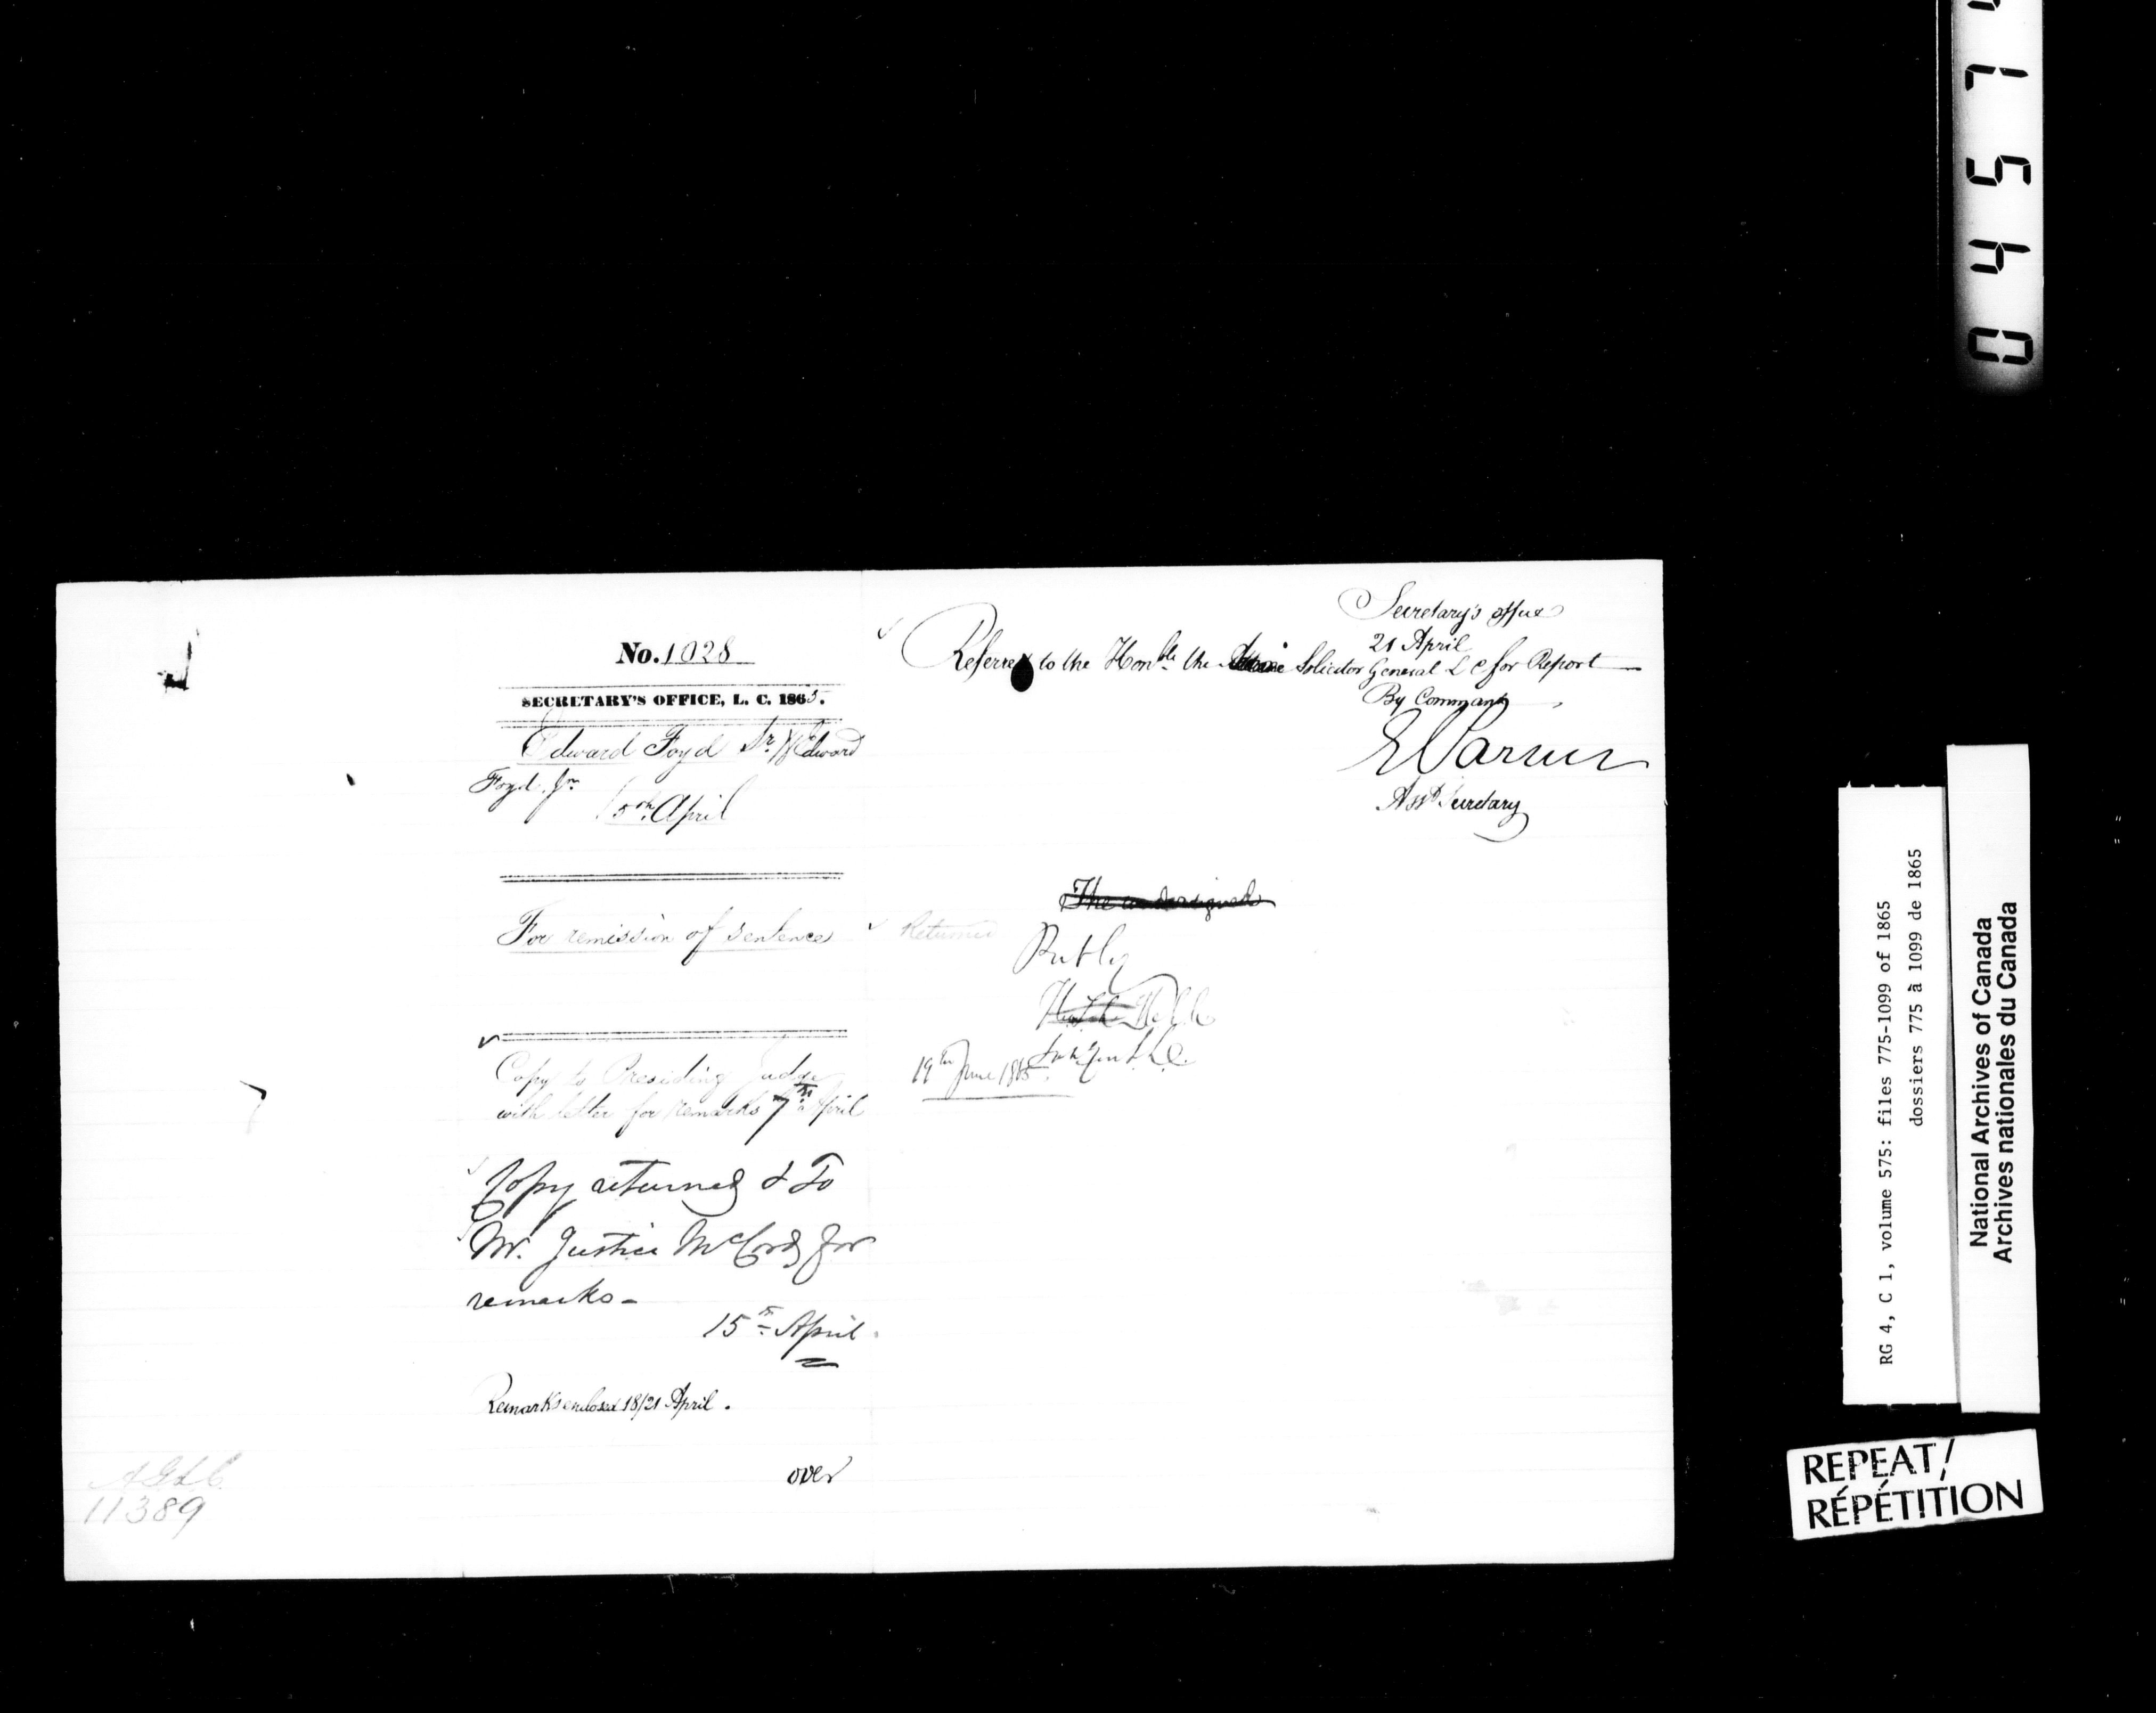 No. 1028
SECRETARY'S OFFICE, L. C. 1865.
Edward Foyd Sr. & Edward
Foyd. Jnr
5th April
For remission of sentence
Copy to Presiding Judge
with letter for remarks 7th April
Copy returned & To
Mr. Justice McCord for
remarks -
15th April.
Remarks enclosed 18/21 April.
over
A G L C
11389
Secretary's office
21 April
Referred to the Honble the Solicitor General L C for Report
By Command
E Parent
Asst Secretary
The undersigned
Returned
19th June 1865.
Sol Gen L.C.
04517
RG 4, C 1, volume 575: files 775-1099 of 1865
dossiers 775 à 1099 de 1865
National Archives of Canada
Archives nationales du Canada
REPEAT/
RÉPÉTITION